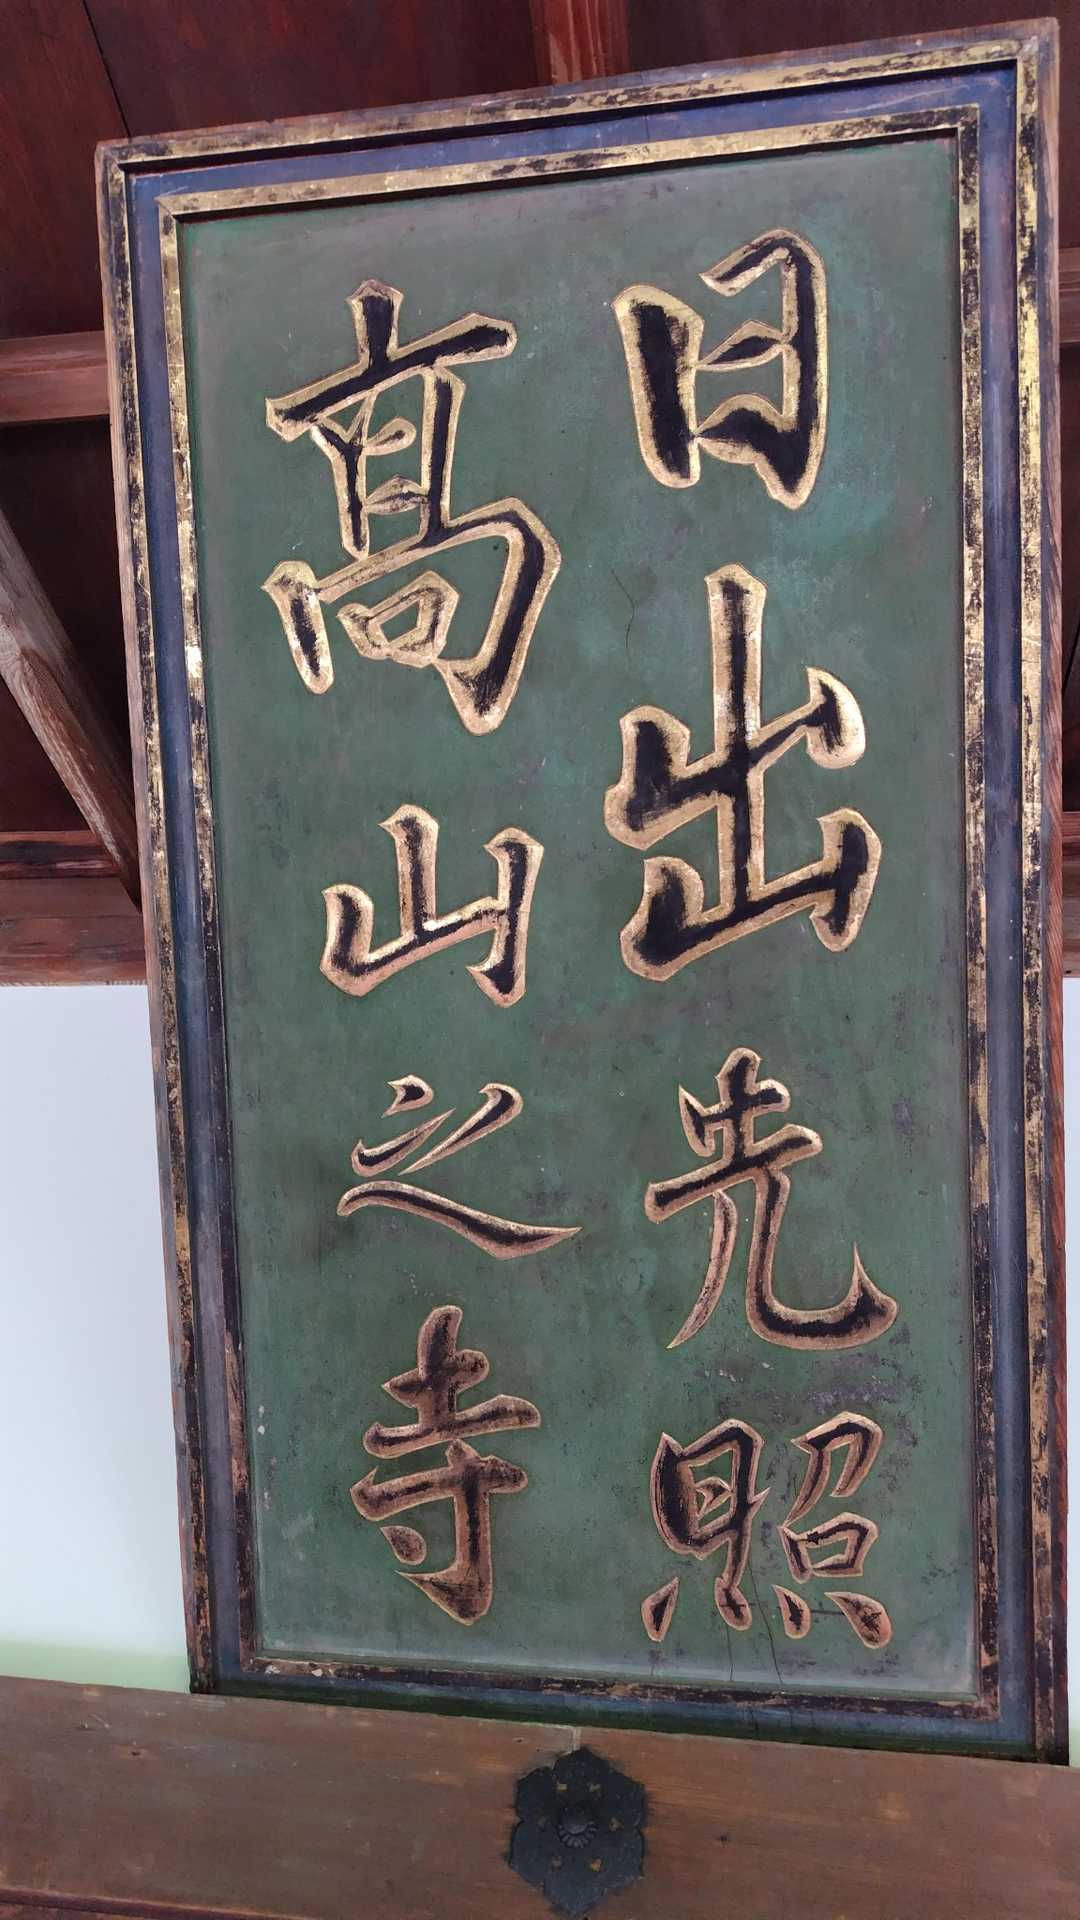 日出先照
髙山之寺